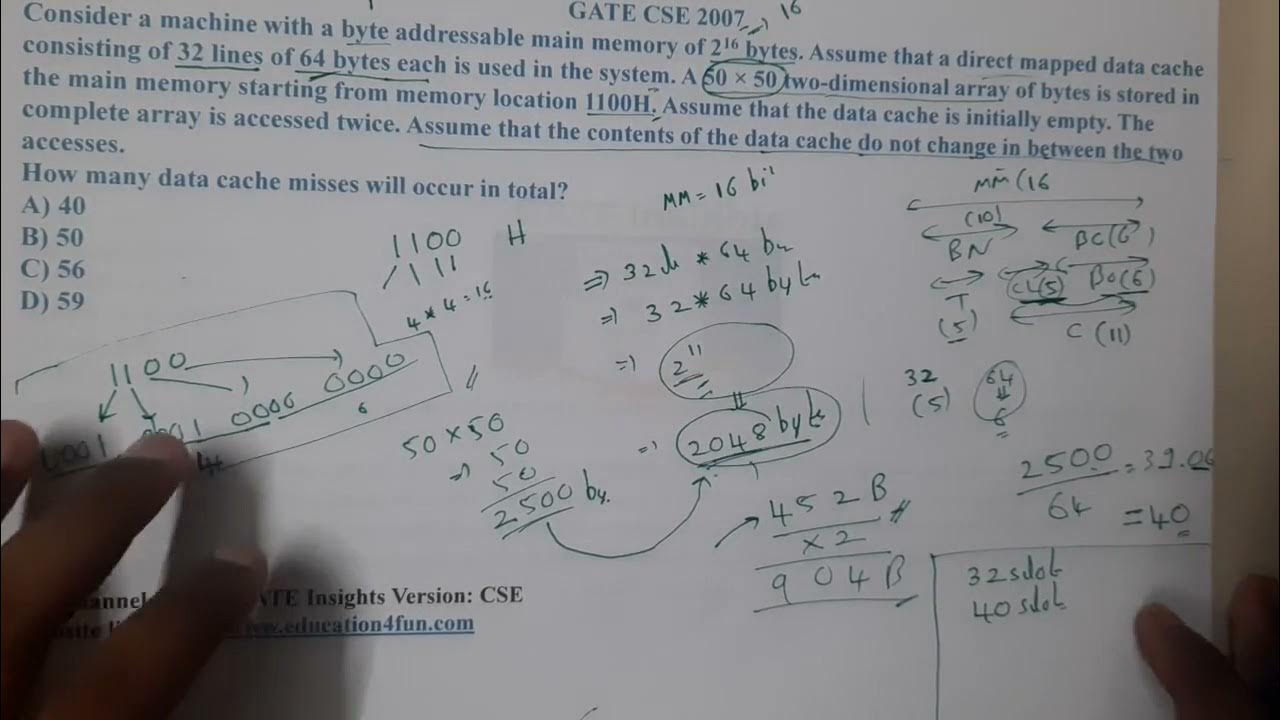 GATE CSE 2007
16
Consider a machine with a byte addressable main memory of 2¹⁶ bytes. Assume that a direct mapped data cache
consisting of 32 lines of 64 bytes each is used in the system. A 50 × 50 two-dimensional array of bytes is stored in
the main memory starting from memory location 1100H. Assume that the data cache is initially empty. The
complete array is accessed twice. Assume that the contents of the data cache do not change in between the two
accesses.
How many data cache misses will occur in total?
A) 40
B) 50
C) 56
D) 59
1100 H
4 * 4 = 16
1100
0001 0000 0000
6
50 × 50
⇒ 50
50
2500 by.
MM = 16 bit
⇒ 32 * 64
⇒ 32 * 64 byte
⇒ 2¹¹
⇒ 2048 byte
452 B
× 2
904 B
MM (16
(10)
BN
T
(5)
CL(5)
BO(6)
C (11)
32
(5)
64
6
2500
64
= 40
32 slot
40 slot
Insights Version: CSE
.education4fun.com